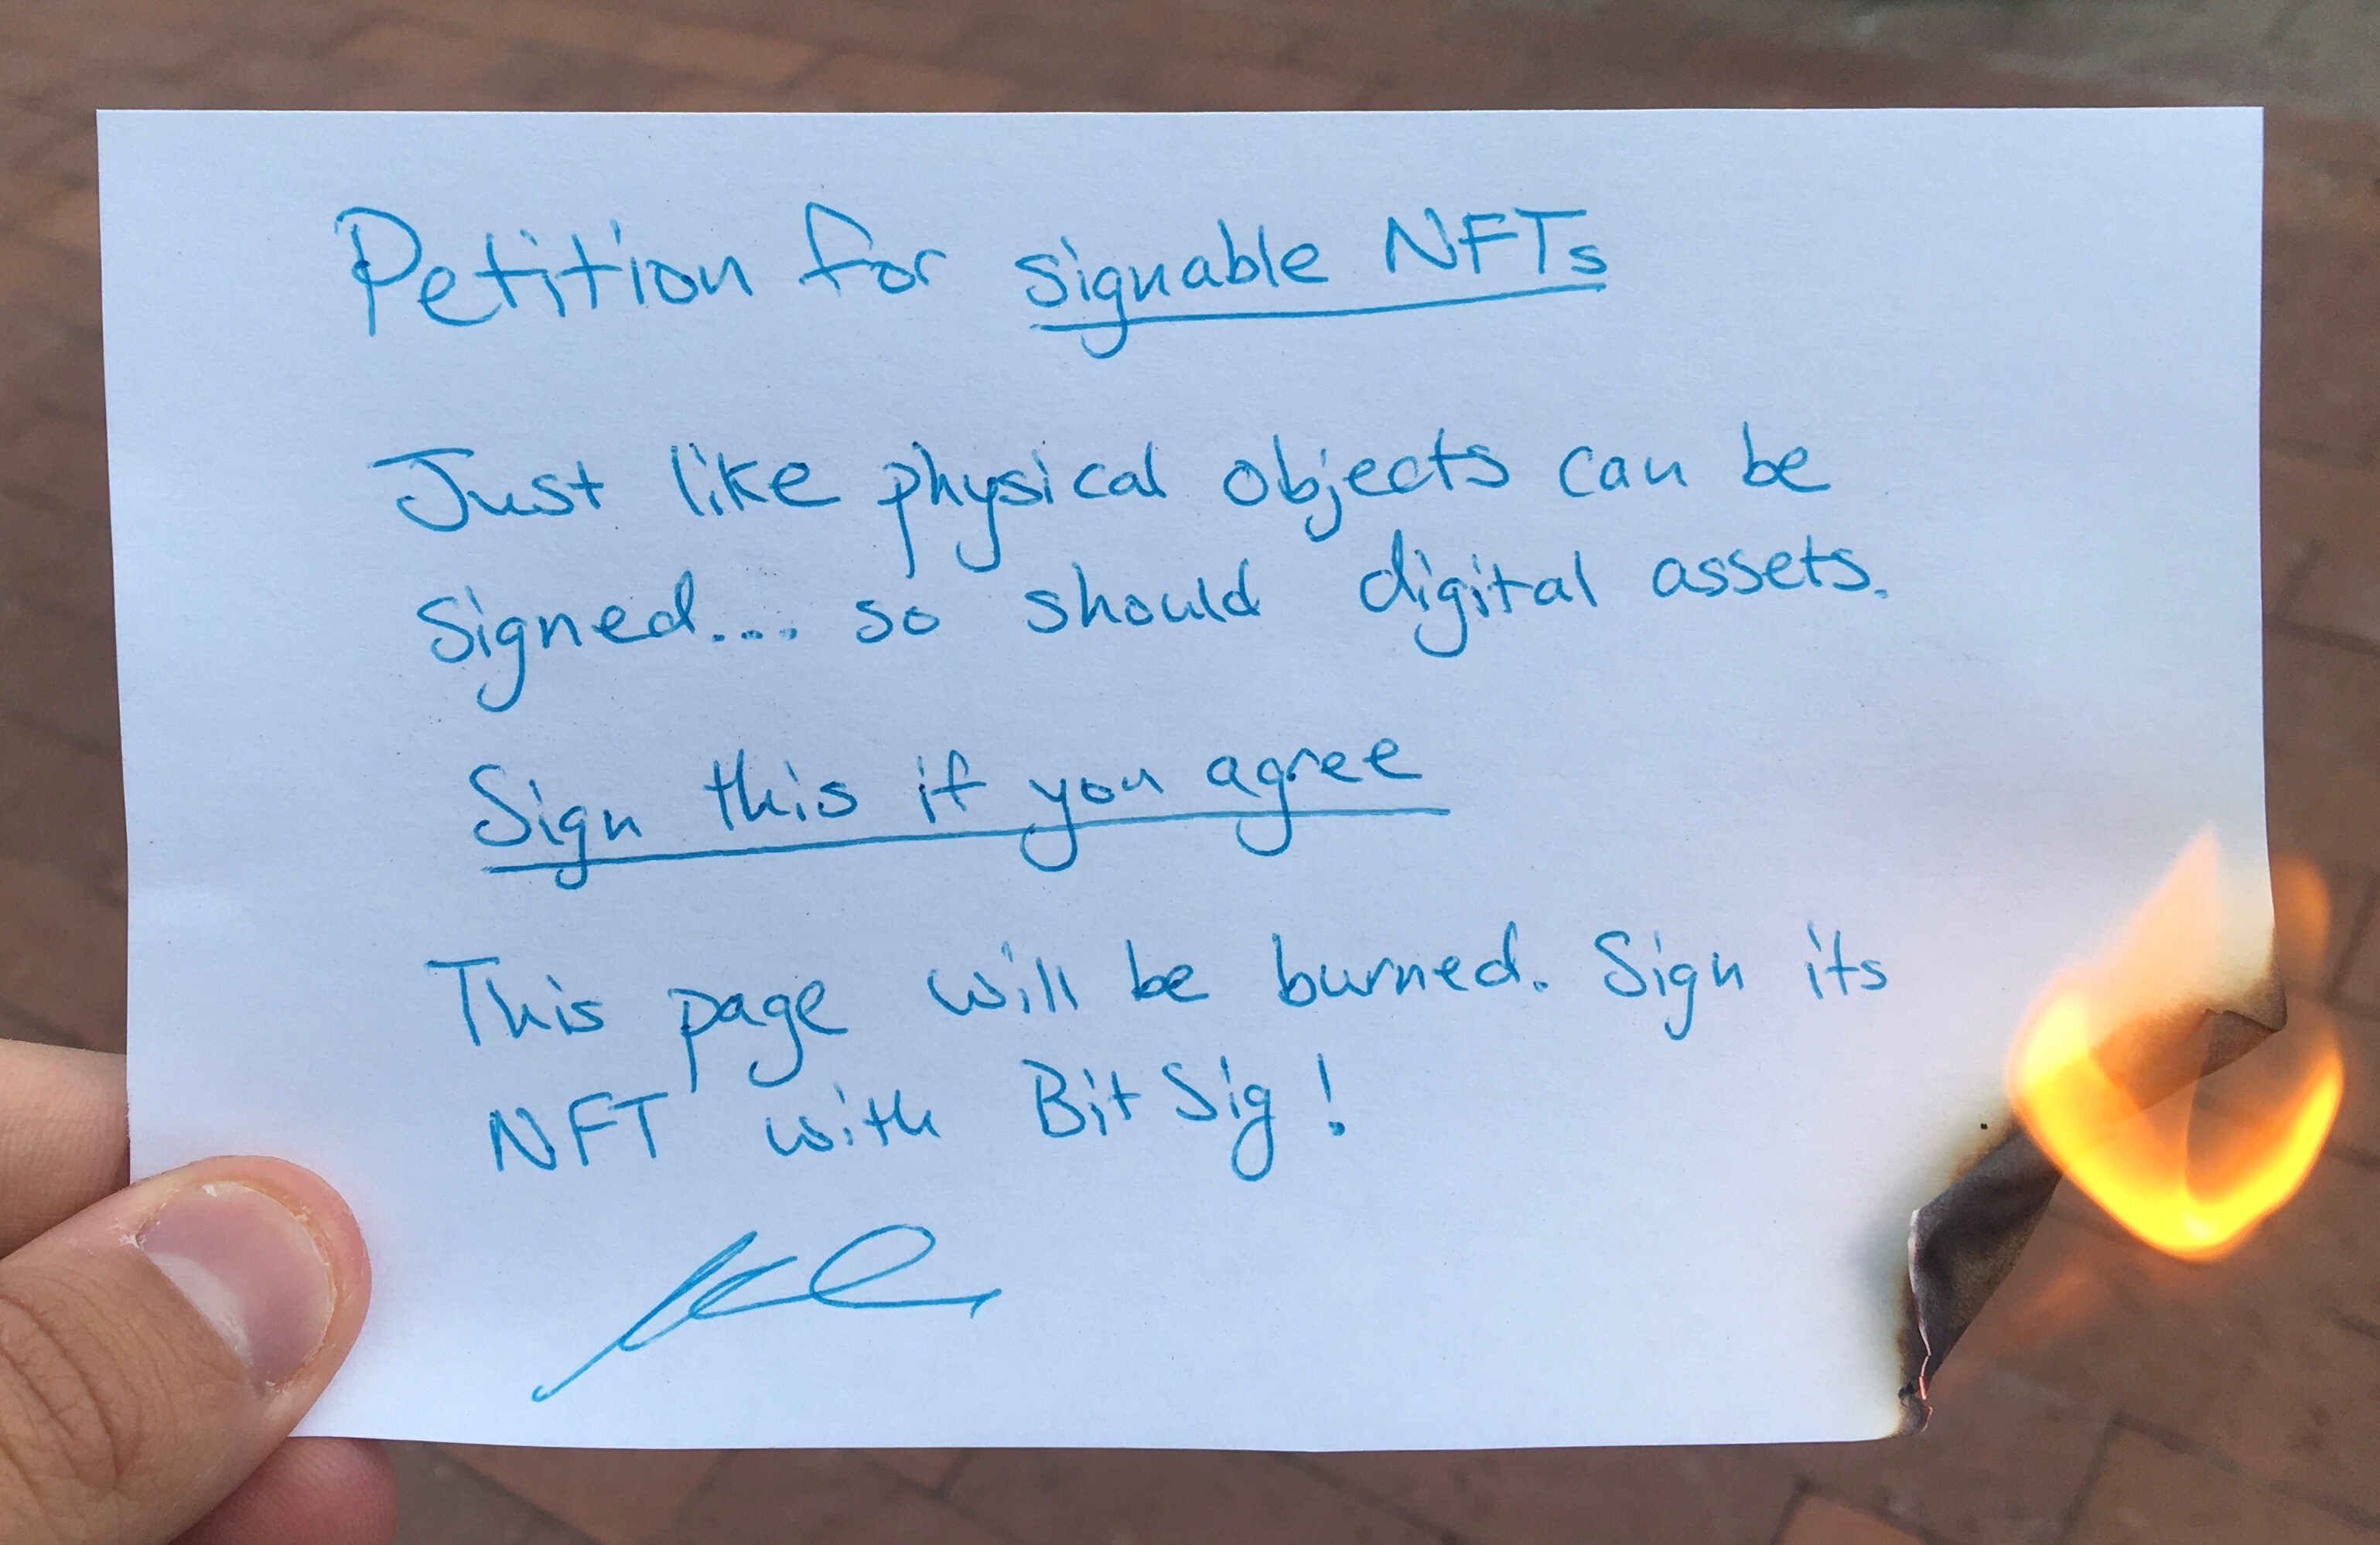 Petition for signable NFTs
Just like physical objects can be
signed.... so should digital assets.
Sign this if you agree
This page will be burned. Sign its
NFT with BitSig!